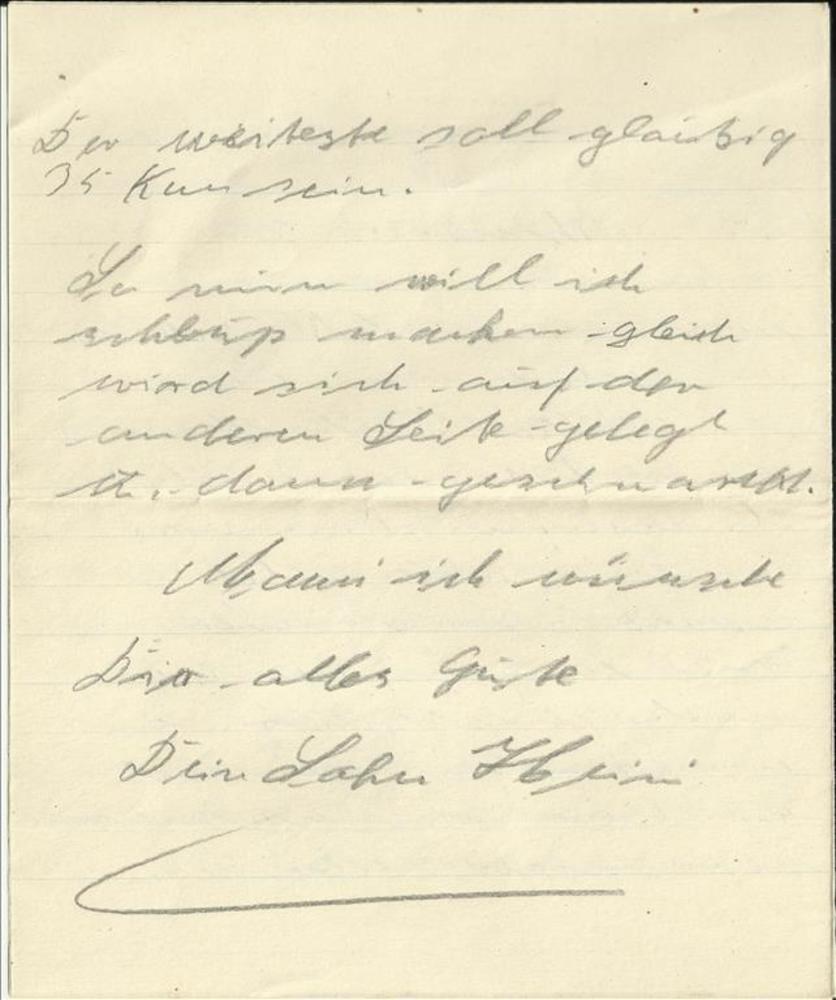 Der weiteste soll glaubig
35 Km sein.
So nun will ich
schluss machen gleich
wird sich auf der
anderen Seite gelegt
u. dann geschnarcht.
Mami ich wünsche
Dir alles Gute
Dein Sohn Heini